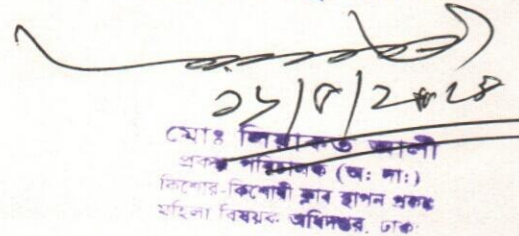 মোঃ লিয়াকত আলী
প্রকল্প পরিচালক (অঃ দাঃ)
কিশোর-কিশোরী ক্লাব স্থাপন প্রকল্প
মহিলা বিষয়ক অধিদপ্তর, ঢাকা